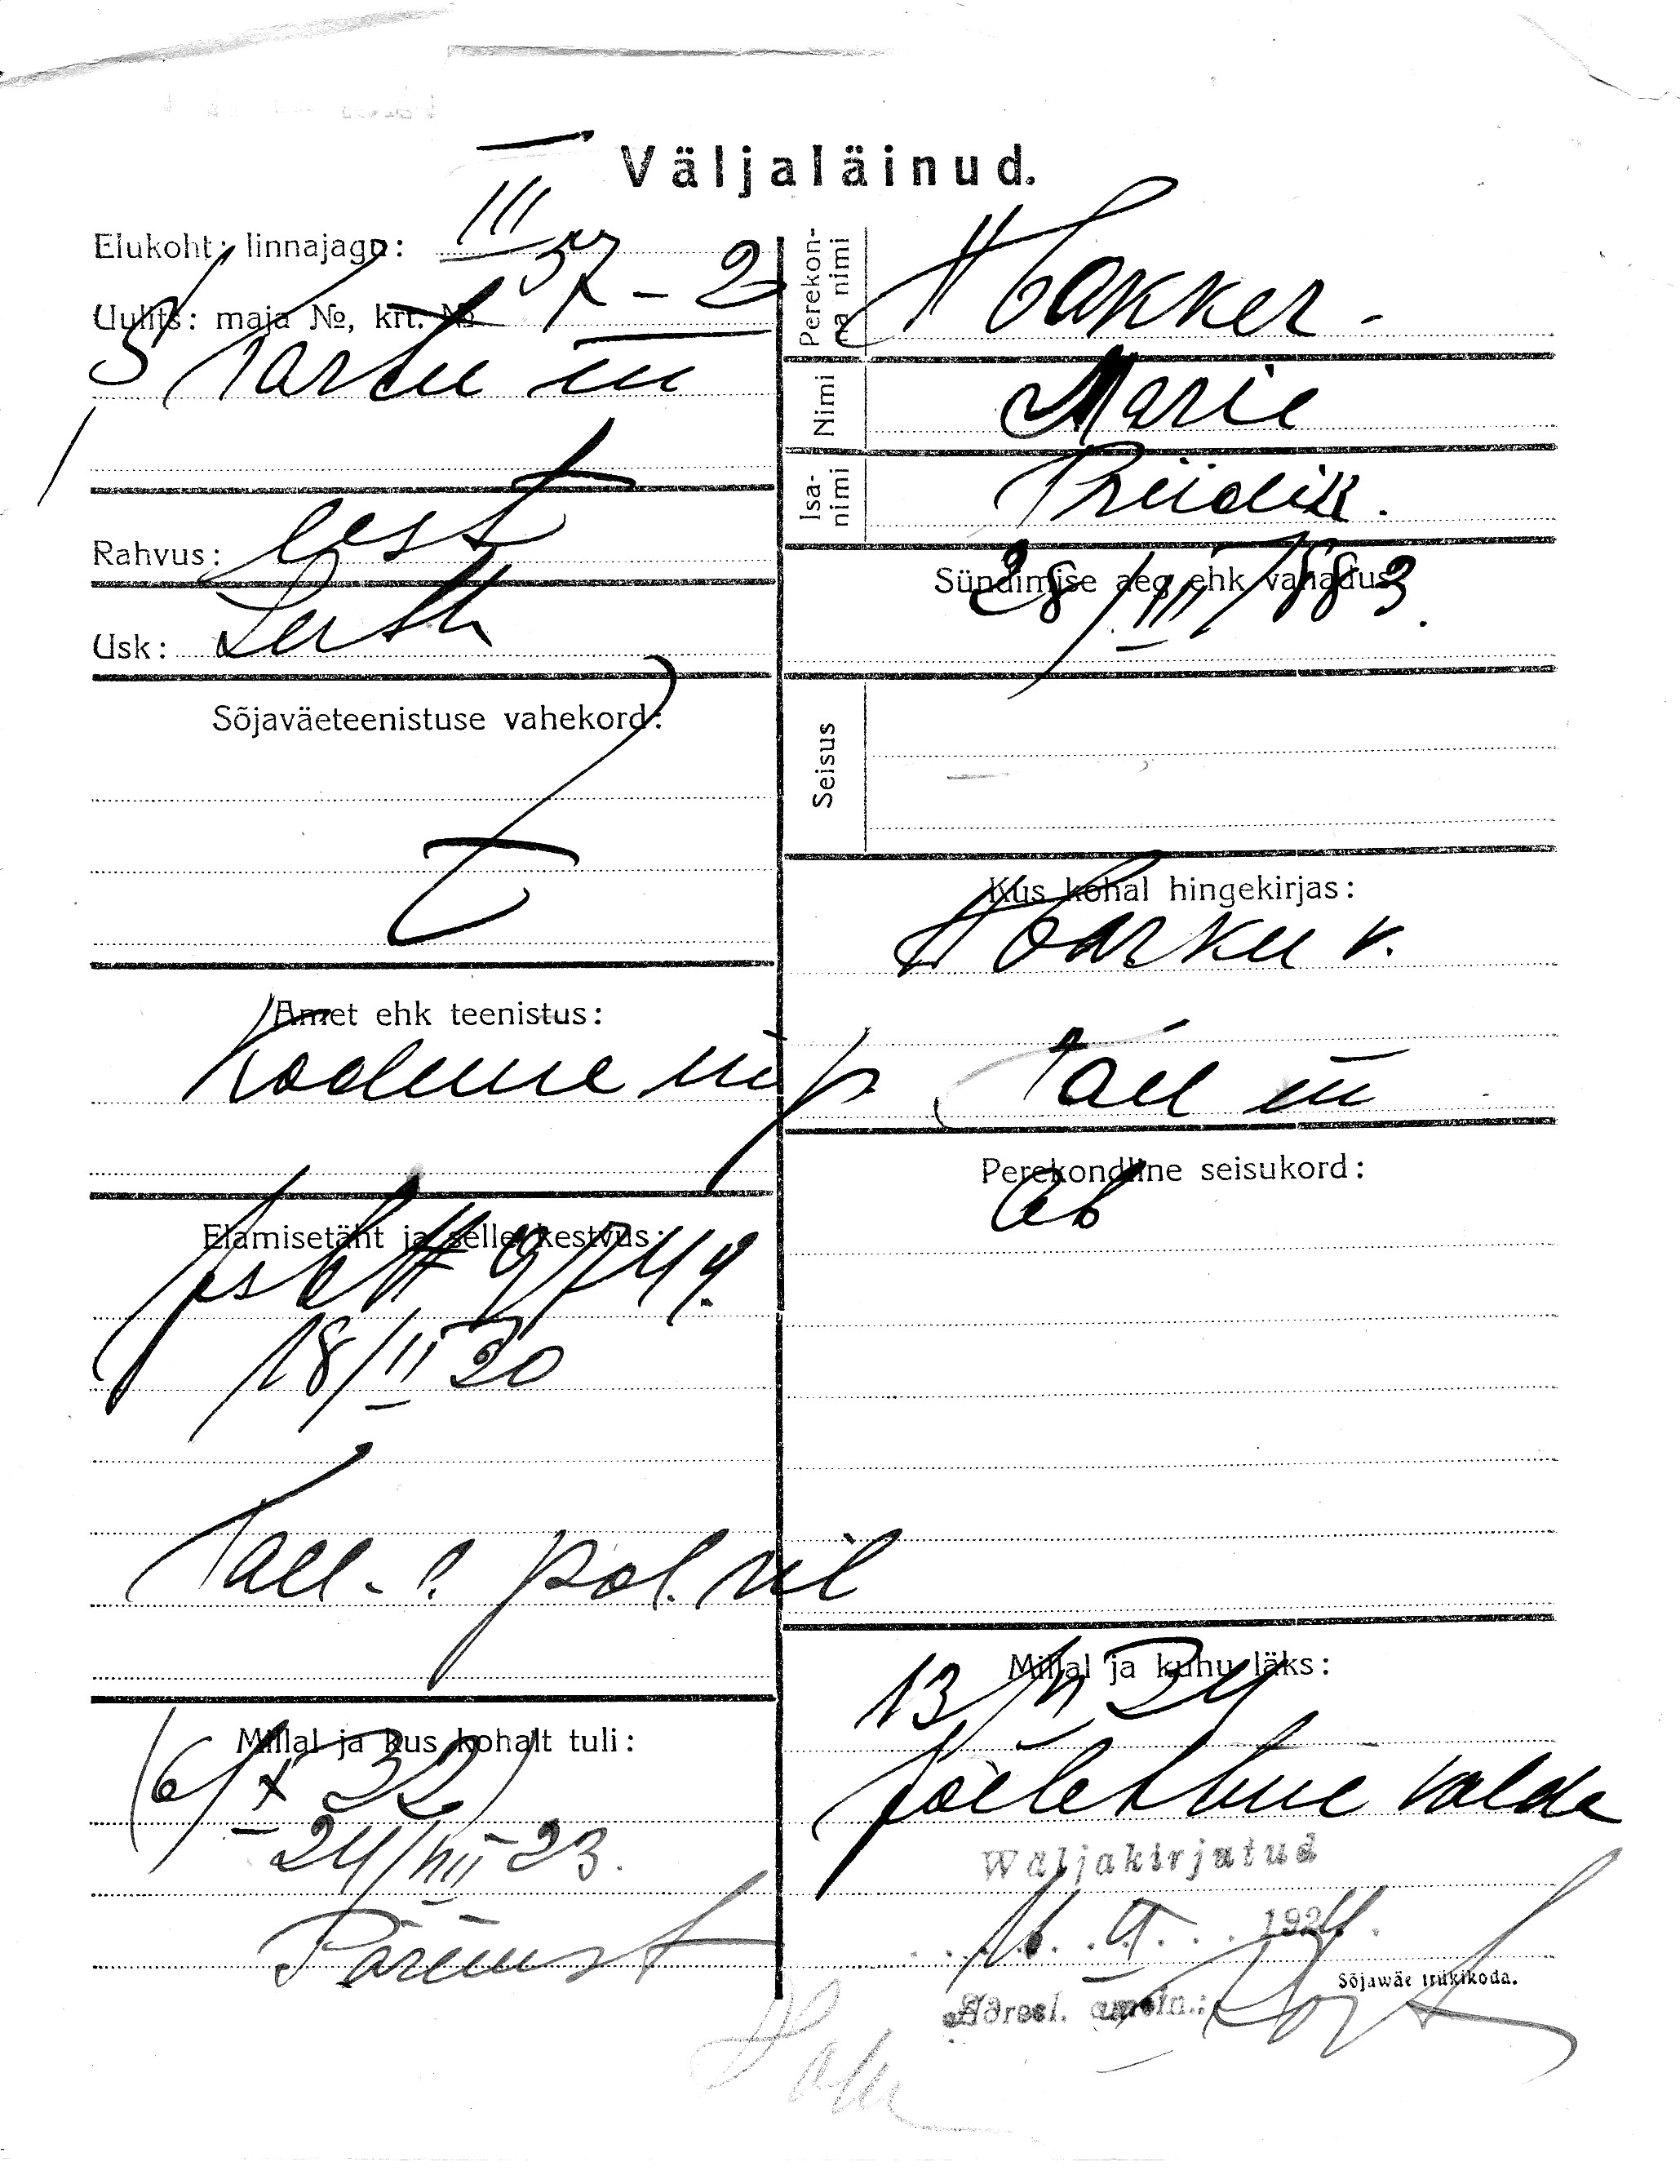 Väljaläinud.
Elukoht: linnajagu: III
Uulits: maja №, krt. № 37 – 2
S Tartu m
Rahvus: eest
Usk: Luth
Sõjaväeteenistuse vahekord:
Amet ehk teenistus:
Kodune
Elamisetäht ja selle kestvus:
18/II 20
Tall.
Millal ja kus kohalt tuli:
(6/X 32)
24/VIII 23.
Pärnust
Perekonna nimi
Hakker.
Nimi
Marie
Isanimi
Priidik.
Sündimise aeg ehk vanadus:
28/III 1883.
Seisus
Kus kohal hingekirjas:
Harku v.
Tall m
Perekondline seisukord:
ab
Millal ja kuhu läks:
13/VI 24
Jõelehtme valda
Wäljakirjutud
1924.
Adressl. ametn.:
Sõjawäe trükikoda.